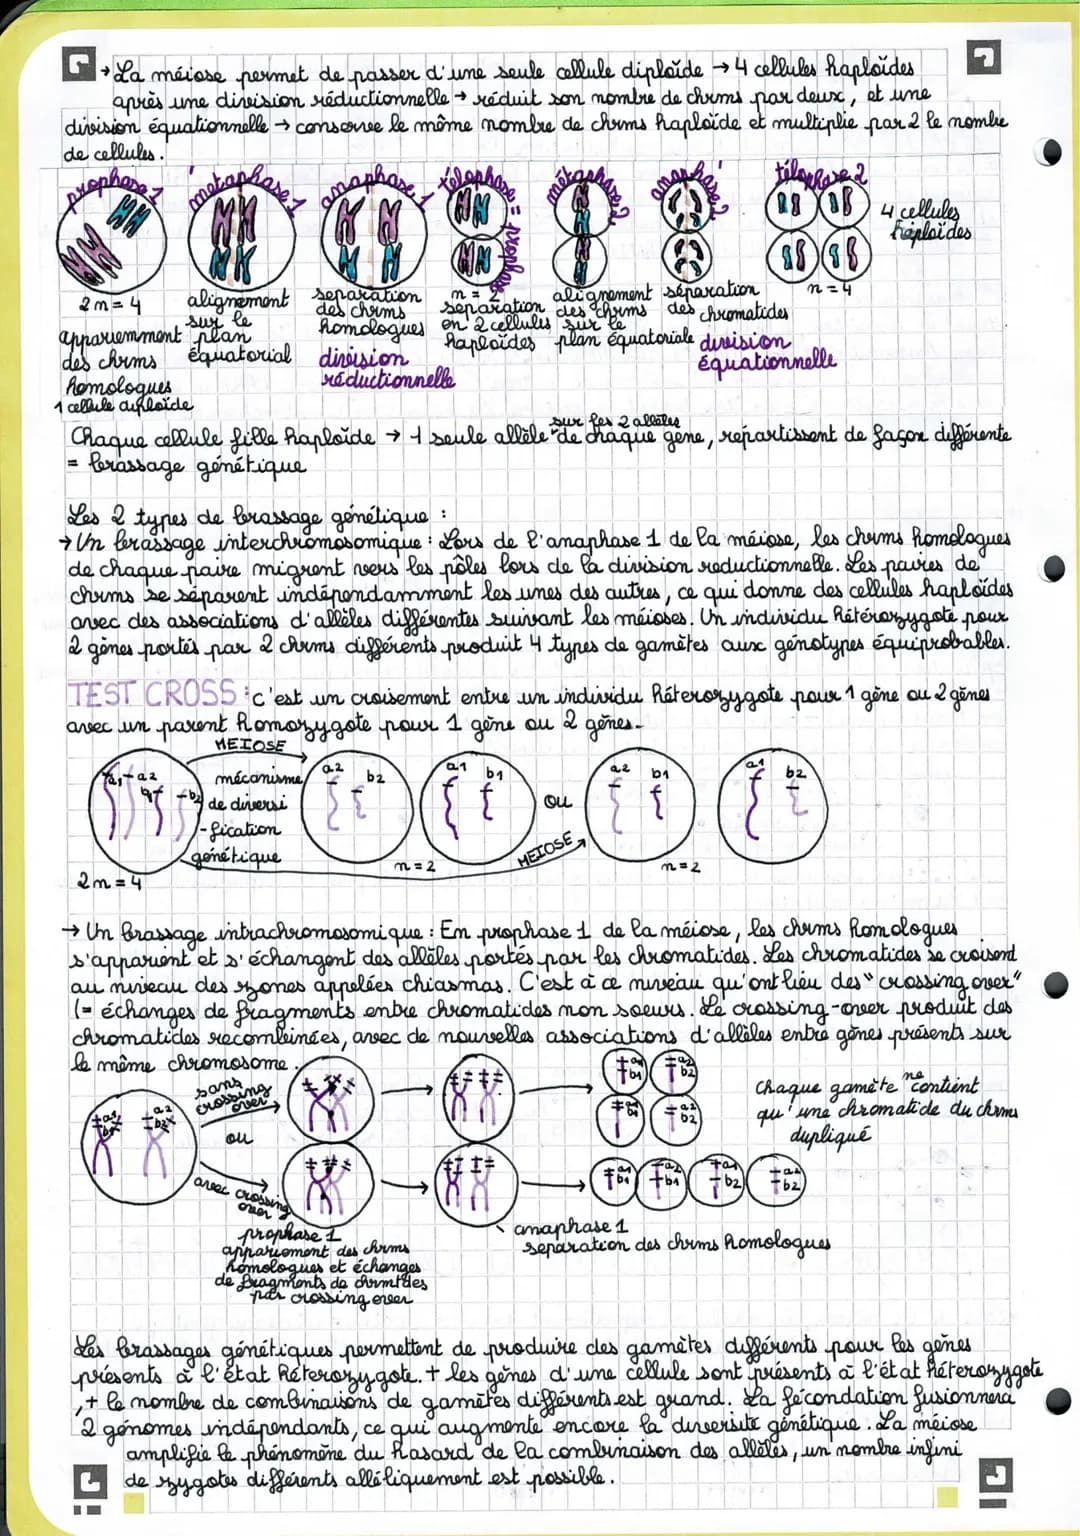 → La méiose permet de passer d'une seule cellule diploïde → 4 cellules haploïdes
après une division réductionnelle → réduit son nombre de chrms par deux, et une
division équationnelle → conserve le même nombre de chrms haploïde et multiplie par 2 le nombre
de cellules.
prophase 1
métaphase 1
anaphase 1
télophase = prophase
métaphase 2
anaphase 2
télophase 2
4 cellules
haploïdes
2n = 4
appariemment
des chrms
homologues
1 cellule diploïde
alignement
sur le
plan
équatorial
separation
des chrms
homologues
division
réductionnelle
n = 2
separation
en 2 cellules
haploïdes
alignement
des chrms
sur le
plan équatoriale
séparation
des chromatides
division
équationnelle
n = 4
sur les 2 allèles
Chaque cellule fille haploïde → 1 seule allèle de chaque gène, répartissent de façon différente
= brassage génétique
Les 2 types de brassage génétique :
→ Un brassage interchromosomique : Lors de l'anaphase 1 de la méiose, les chrms homologues
de chaque paire migrent vers les pôles lors de la division reductionnelle. Les paires de
chrms se séparent indépendamment les unes des autres, ce qui donne des cellules haploïdes
avec des associations d'allèles différentes suivant les méioses. Un individu hétérozygote pour
2 gènes portés par 2 chrms différents produit 4 types de gamètes aux génotypes équiprobables.
TEST CROSS : c'est un croisement entre un individu hétérozygote pour 1 gène ou 2 gènes
avec un parent homozygote pour 1 gène ou 2 gènes.
MEIOSE
a1 a2
b1 b2
mécanisme
de diversi
-fication
génétique
2n = 4
a2 b2
a1 b1
n = 2
ou
MEIOSE
a2 b1
a1 b2
n = 2
→ Un brassage intrachromosomique : En prophase 1 de la méiose, les chrms homologues
s'apparient et s'échangent des allèles portés par les chromatides. Les chromatides se croisent
au niveau des zones appelées chiasmas. C'est à ce niveau qu'ont lieu des "crossing over"
(= échanges de fragments entre chromatides non soeurs. Le crossing-over produit des
chromatides recombinées, avec de nouvelles associations d'allèles entre gènes présents sur
le même chromosome.
a1 b1
a2 b2
sans
crossing
over
ou
avec crossing
over
prophase 1
appariement des chrms
homologues et échanges
de fragments de chrmtdes
par crossing over
anaphase 1
séparation des chrms homologues
a1 b1
a2 b2
a1 b1
a2 b2
a1 b1
a2 b1
a1 b2
a2 b2
chaque gamète ne contient
qu'une chromatide du chrms
dupliqué
Les brassages génétiques permettent de produire des gamètes différents pour les gènes
présents à l'état hétérozygote. + les gènes d'une cellule sont présents à l'état hétérozygote
, + le nombre de combinaisons de gamètes différents est grand. La fécondation fusionnera
2 génomes indépendants, ce qui augmente encore la diversité génétique. La méiose
amplifie le phénomène du hasard de la combinaison des allèles, un nombre infini
de zygotes différents alléliquement est possible.